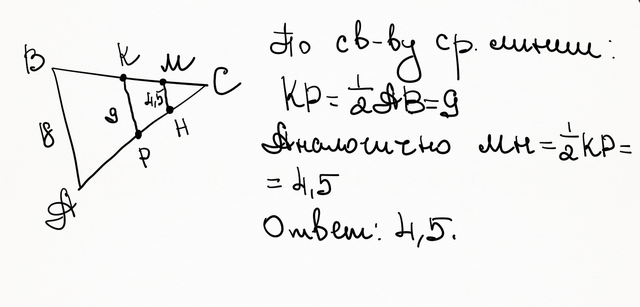 B
K
M
C
4,5
9
18
H
P
A
По св-ву ср. линии:
KP = 1/2 AB = 9
Аналогично MH = 1/2 KP =
= 4,5
Ответ: 4,5.